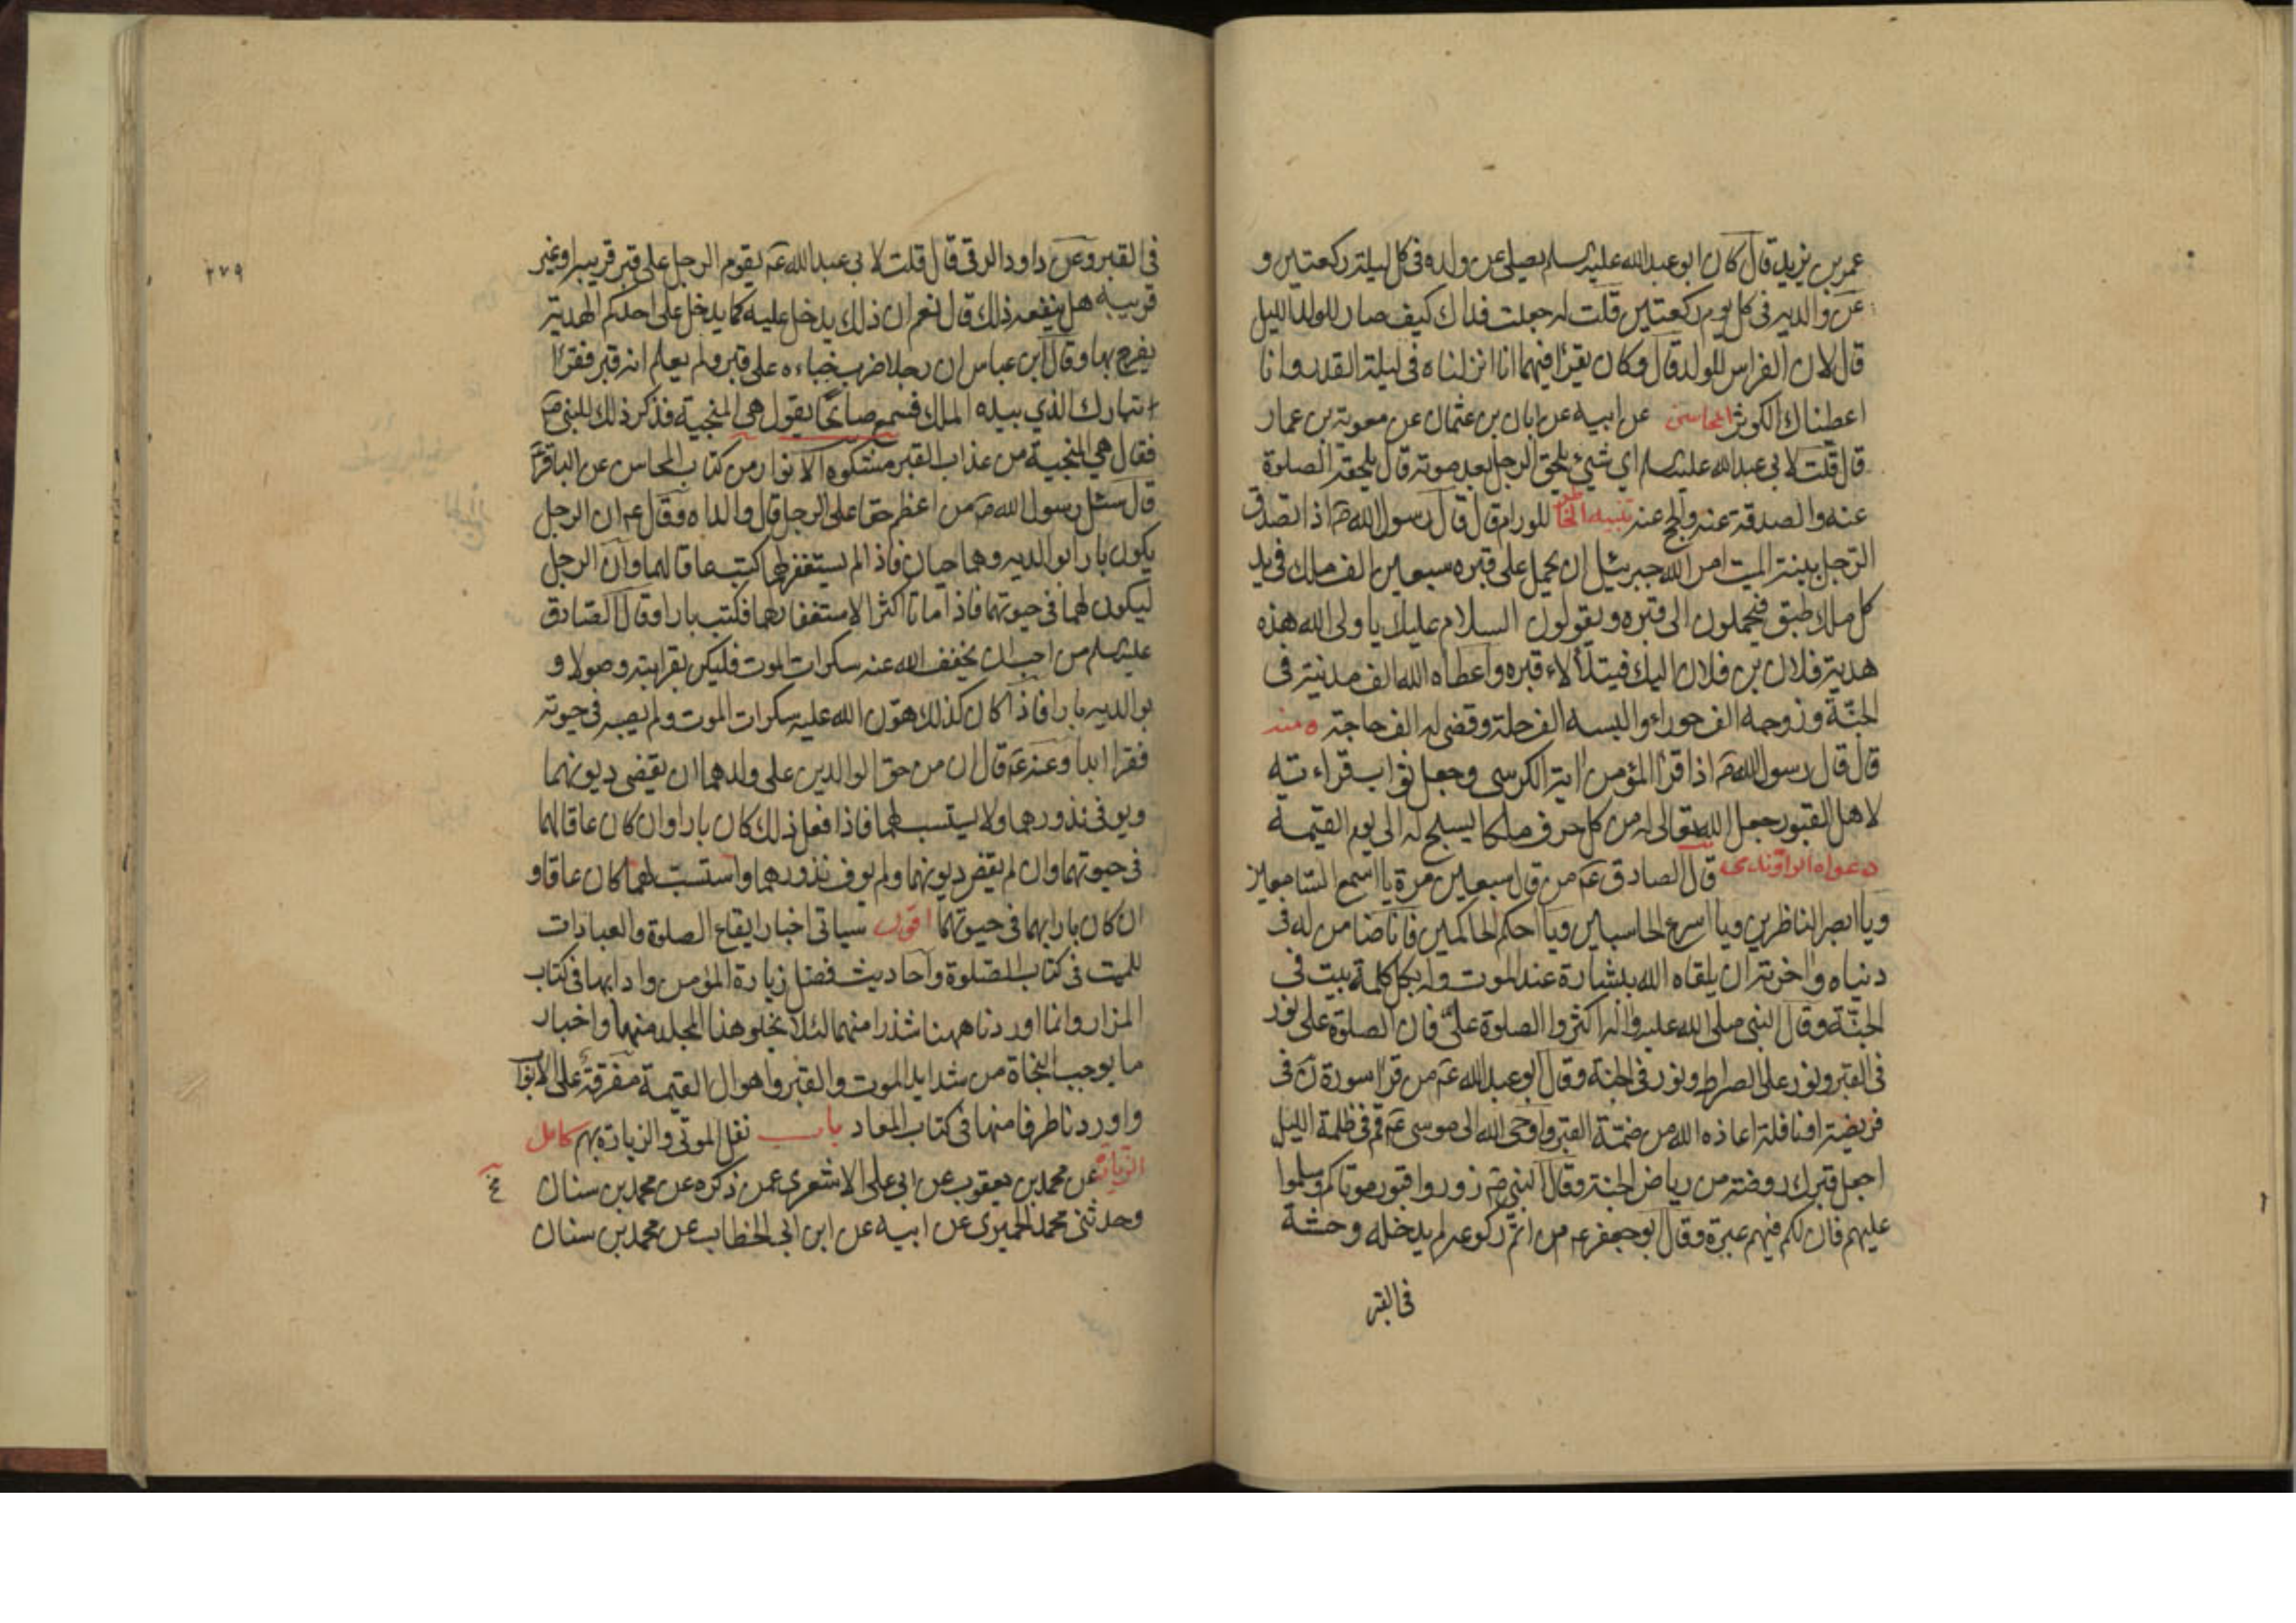 عمر بن يزيد قال كان ابو عبد الله عليه السلم يصلى عن ولده فى كل ليلة ركعتين و
عن والديه فى كل يوم ركعتين قلت له جعلت فداك كيف صار للولد الليل
قال لان الفراش للولد قال وكان يقرا فيهما انا انزلناه فى ليلة القدر وانا
اعطيناك الكوثر المحاسن عن ابيه عن ابان بن عثمان عن معوية بن عمار
قال قلت لابى عبد الله عليه السلم اى شىء يلحق الرجل بعد موته قال يلحقه الصلوة
عنه والصدقة عنه والحج عنه تنبيه الخاطر للورام قال قال رسول الله ص اذا تصدق
الرجل بنية الميت امر الله جبرئيل ان يحمل على قبره سبعين الف ملك فى يد
كل ملك طبق فيحملون الى قبره ويقولون السلام عليك يا ولى الله هذه
هدية فلان بن فلان اليك فيتلألاء قبره واعطاه الله الف مدينة فى
الجنة وزوجه الف حوراء والبسه الف حلة وقضى له الف حاجة ه منه
قال قال رسول الله ص اذا قرأ المؤمن اية الكرسى وجعل ثواب قراءته
لاهل القبور جعل الله تعالى له من كل حرف ملكا يسبح له الى يوم القيمة
دعواه الراوندى قال الصادق ع من قال سبعين مرة يا اسمع السامعين
ويا ابصر الناظرين ويا اسرع الحاسبين ويا احكم الحاكمين فانا ضامن له فى
دنياه واخرته ان يلقاه الله ببشارة عند الموت وله بكل كلمة بيت فى
الجنة وقال النبى صلى الله عليه واله اكثروا الصلوة على فان الصلوة على نور
فى القبر ونور على الصراط ونور فى الجنة وقال ابو عبد الله ع من قرا سورة ن فى
فريضة او نافلة اعاذه الله من ضمة القبر واوحى الله الى موسى ع قم فى ظلمة الليل
اجعل قبرك روضة من رياض الجنة وقال النبى ص زوروا قبور موتاكم وسلموا
عليهم فان لكم فيهم عبرة وقال ابو جعفر ع من اتم ركوعه لم يدخله وحشة
فى القبر
٢٧٩
فى القبر وعن داود الرقى قال قلت لابى عبد الله ع يقوم الرجل على قبر قريبه وغير
قريبه هل ينفعه ذلك قال نعم ان ذلك يدخل عليه كما يدخل على احدكم الهدية
يفرح بها وقال ابن عباس ان رجلا ضرب خباءه على قبر ولم يعلم انه قبر فقرأ
تبارك الذي بيده الملك فسمع صائحا يقول هى المنجية فذكر ذلك للنبى ص
فقال هى المنجية من عذاب القبر مشكوة الانوار من كتاب المحاسن عن الباقر ع
قال سئل رسول الله ص من اعظم حقا على الرجل قال والداه وقال ع ان الرجل
يكون بارا بوالديه وهما حيان فاذا لم يستغفر لهما كتب عاقا لهما وان الرجل
ليكون لهما فى حيوتهما فاذا ماتا اكثر الاستغفار لهما فكتب بارا وقال الصادق
عليه السلم من احب ان يخفف الله عنه سكرات الموت فليكن بقرابته وصولا و
بوالديه بارا فاذا كان كذلك هون الله عليه سكرات الموت ولم يصبه فى حيوته
فقر ابدا وعنه ع قال ان من حق الوالدين على ولدهما ان يقضى ديونهما
ويوفى نذورهما ولا يستسب لهما فاذا فعل ذلك كان بارا وان كان عاقا لهما
فى حيوتهما وان لم يقض ديونهما ولم يوف نذورهما واستسب لهما كان عاقا و
ان كان بارا بهما فى حيوتهما اقول سياتى اخبار ايقاع الصلوة والعبادات
للميت فى كتاب الصلوة واحاديث فضل زيارة المؤمن وادابها فى كتاب
المزار وانما اوردنا ههنا شذرا منهما لئلا يخلو هذا المجلد منهما واخبار
ما يوجب النجاة من شدايد الموت والقبر واهوال القيمة مفرقة على الابواب
واوردنا طرفا منها فى كتاب المعاد باب نقل الموتى والزيارة بهم كامل
الزيارة عن محمد بن يعقوب عن ابى على الاشعرى عمن ذكره عن محمد بن سنان
وحدثنى محمد الحميرى عن ابيه عن ابن ابى الخطاب عن محمد بن سنان